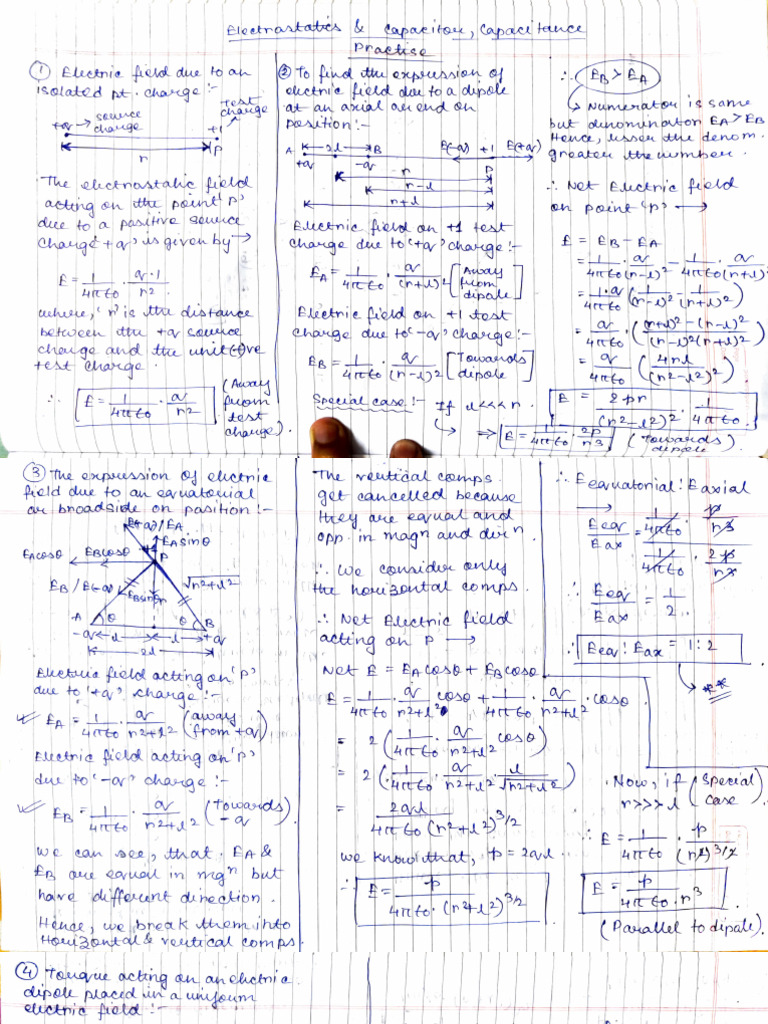 Electrostatics & capacitor, Capacitance
Practise
① Electric field due to an
isolated pt. charge :-
+q → source
charge
test
charge
+1
P
r
The electrostatic field
acting on the point 'P'
due to a positive source
charge '+q' is given by →
E = 1/4πε0 · q·1/r2.
where, 'r' is the distance
between the +q source
charge and the unit (+)ve
test charge.
∴ E = 1/4πε0 · q/r2
(Away
from
test
charge).
② To find the expression of
electric field due to a dipole
at an axial or end on
position :-
A 2l B E(-q) +1 E(+q)
+q -q P
r
r-l
r+l
Electric field on +1 test
charge due to '+q' charge :-
EA = 1/4πε0 · q/(r+l)2 [Away
from
dipole]
Electric field on +1 test
charge due to '-q' charge :-
EB = 1/4πε0 · q/(r-l)2 [Towards
dipole]
Special case :- If l<<<r.
⇒ E = 1/4πε0 · 2p/r3
∴ EB > EA
→ Numerator is same
but denominator EA > EB
Hence, lesser the denom.
greater the number.
∴ Net Electric field
on point 'p' →
E = EB - EA
= 1/4πε0 · q/(r-l)2 - 1/4πε0 · q/(r+l)2
= 1·q/4πε0 (1/(r-l)2 - 1/(r+l)2)
= q/4πε0 · ((r+l)2-(r-l)2/(r-l)2(r+l)2)
= q/4πε0 (4rl/(r2-l2)2)
E = 2pr/(r2-l2)2 · 1/4πε0
(Towards
dipole).
③ The expression of electric
field due to an equatorial
or broadside on position :-
E(+q)/EA
EA cosθ EB cosθ EA sinθ
P
EB/E(-q) EB sinθ r √r2+l2
A θ θ B
-q l l +q
2l
Electric field acting on 'p'
due to '+q' charge :-
EA = 1/4πε0 · q/r2+l2 (away
from +q)
Electric field acting on 'p'
due to '-q' charge :-
EB = 1/4πε0 · q/r2+l2 (towards
-q)
We can see, that EA &
EB are equal in mgn but
have different direction.
Hence, we break them into
horizontal & vertical comps.
The vertical comps.
get cancelled because
they are equal and
opp. in magn and dirn.
∴ We consider only
the horizontal comps.
∴ Net Electric field
acting on P →
Net E = EA cosθ + EB cosθ
E = 1/4πε0 · q/r2+l2 cosθ + 1/4πε0 · q/r2+l2 · cosθ
= 2 (1/4πε0 · q/r2+l2 cosθ)
= 2 (1/4πε0 · q/r2+l2 · l/√r2+l2)
= 2ql/4πε0 (r2+l2)3/2
We know that, p = 2ql
∴ E = p/4πε0 · (r2+l2)3/2
∴ Eequatorial : Eaxial
→
Eeq/Eax = 1/4πε0 · p/r3 / 1/4πε0 · 2p/r3
∴ Eeq/Eax = 1/2.
∴ Eeq : Eax = 1:2
→ **
Now, if (Special
r>>>l case)
∴ E = 1/4πε0 · p/(r2)3/2
E = p/4πε0 · r3
(Parallel to dipole).
④ Torque acting on an electric
dipole placed in a uniform
electric field :-